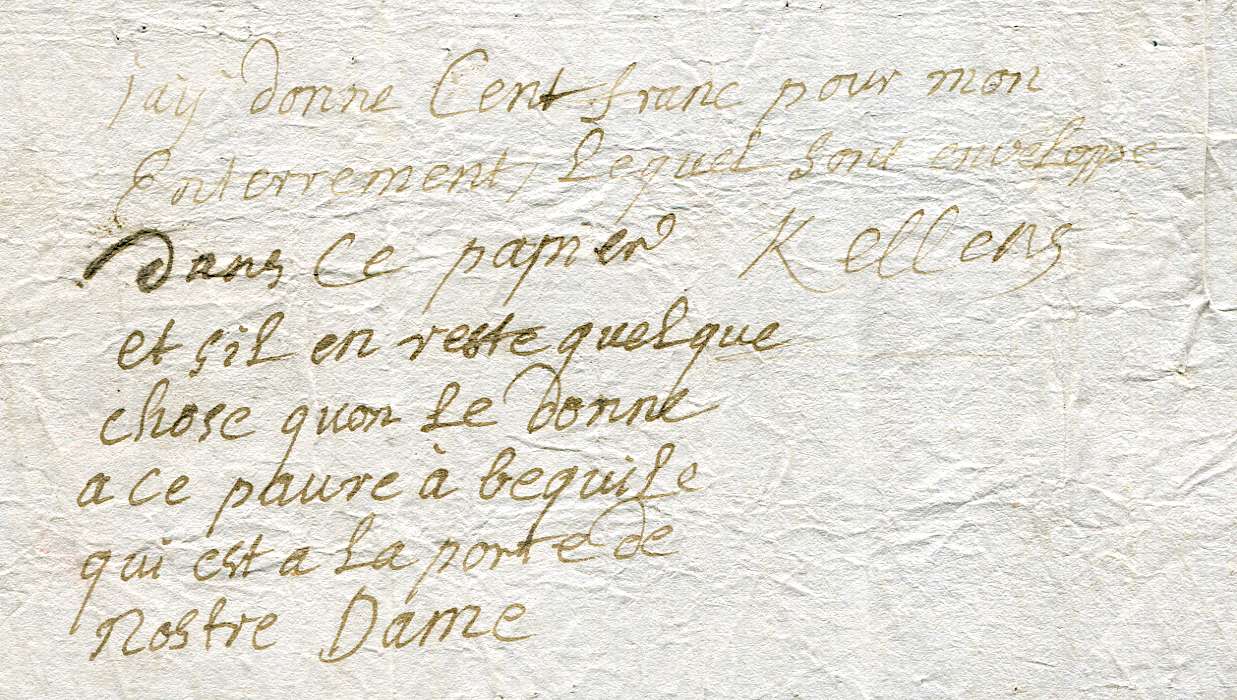 jaÿ donne Cent franc pour mon
Enterrement, Lequel sont enveloppe
Dans Ce papier Kellens
et sil en reste quelque
chose quon Le donne
a ce paure à bequile
qui est a La porte de
Nostre Dame